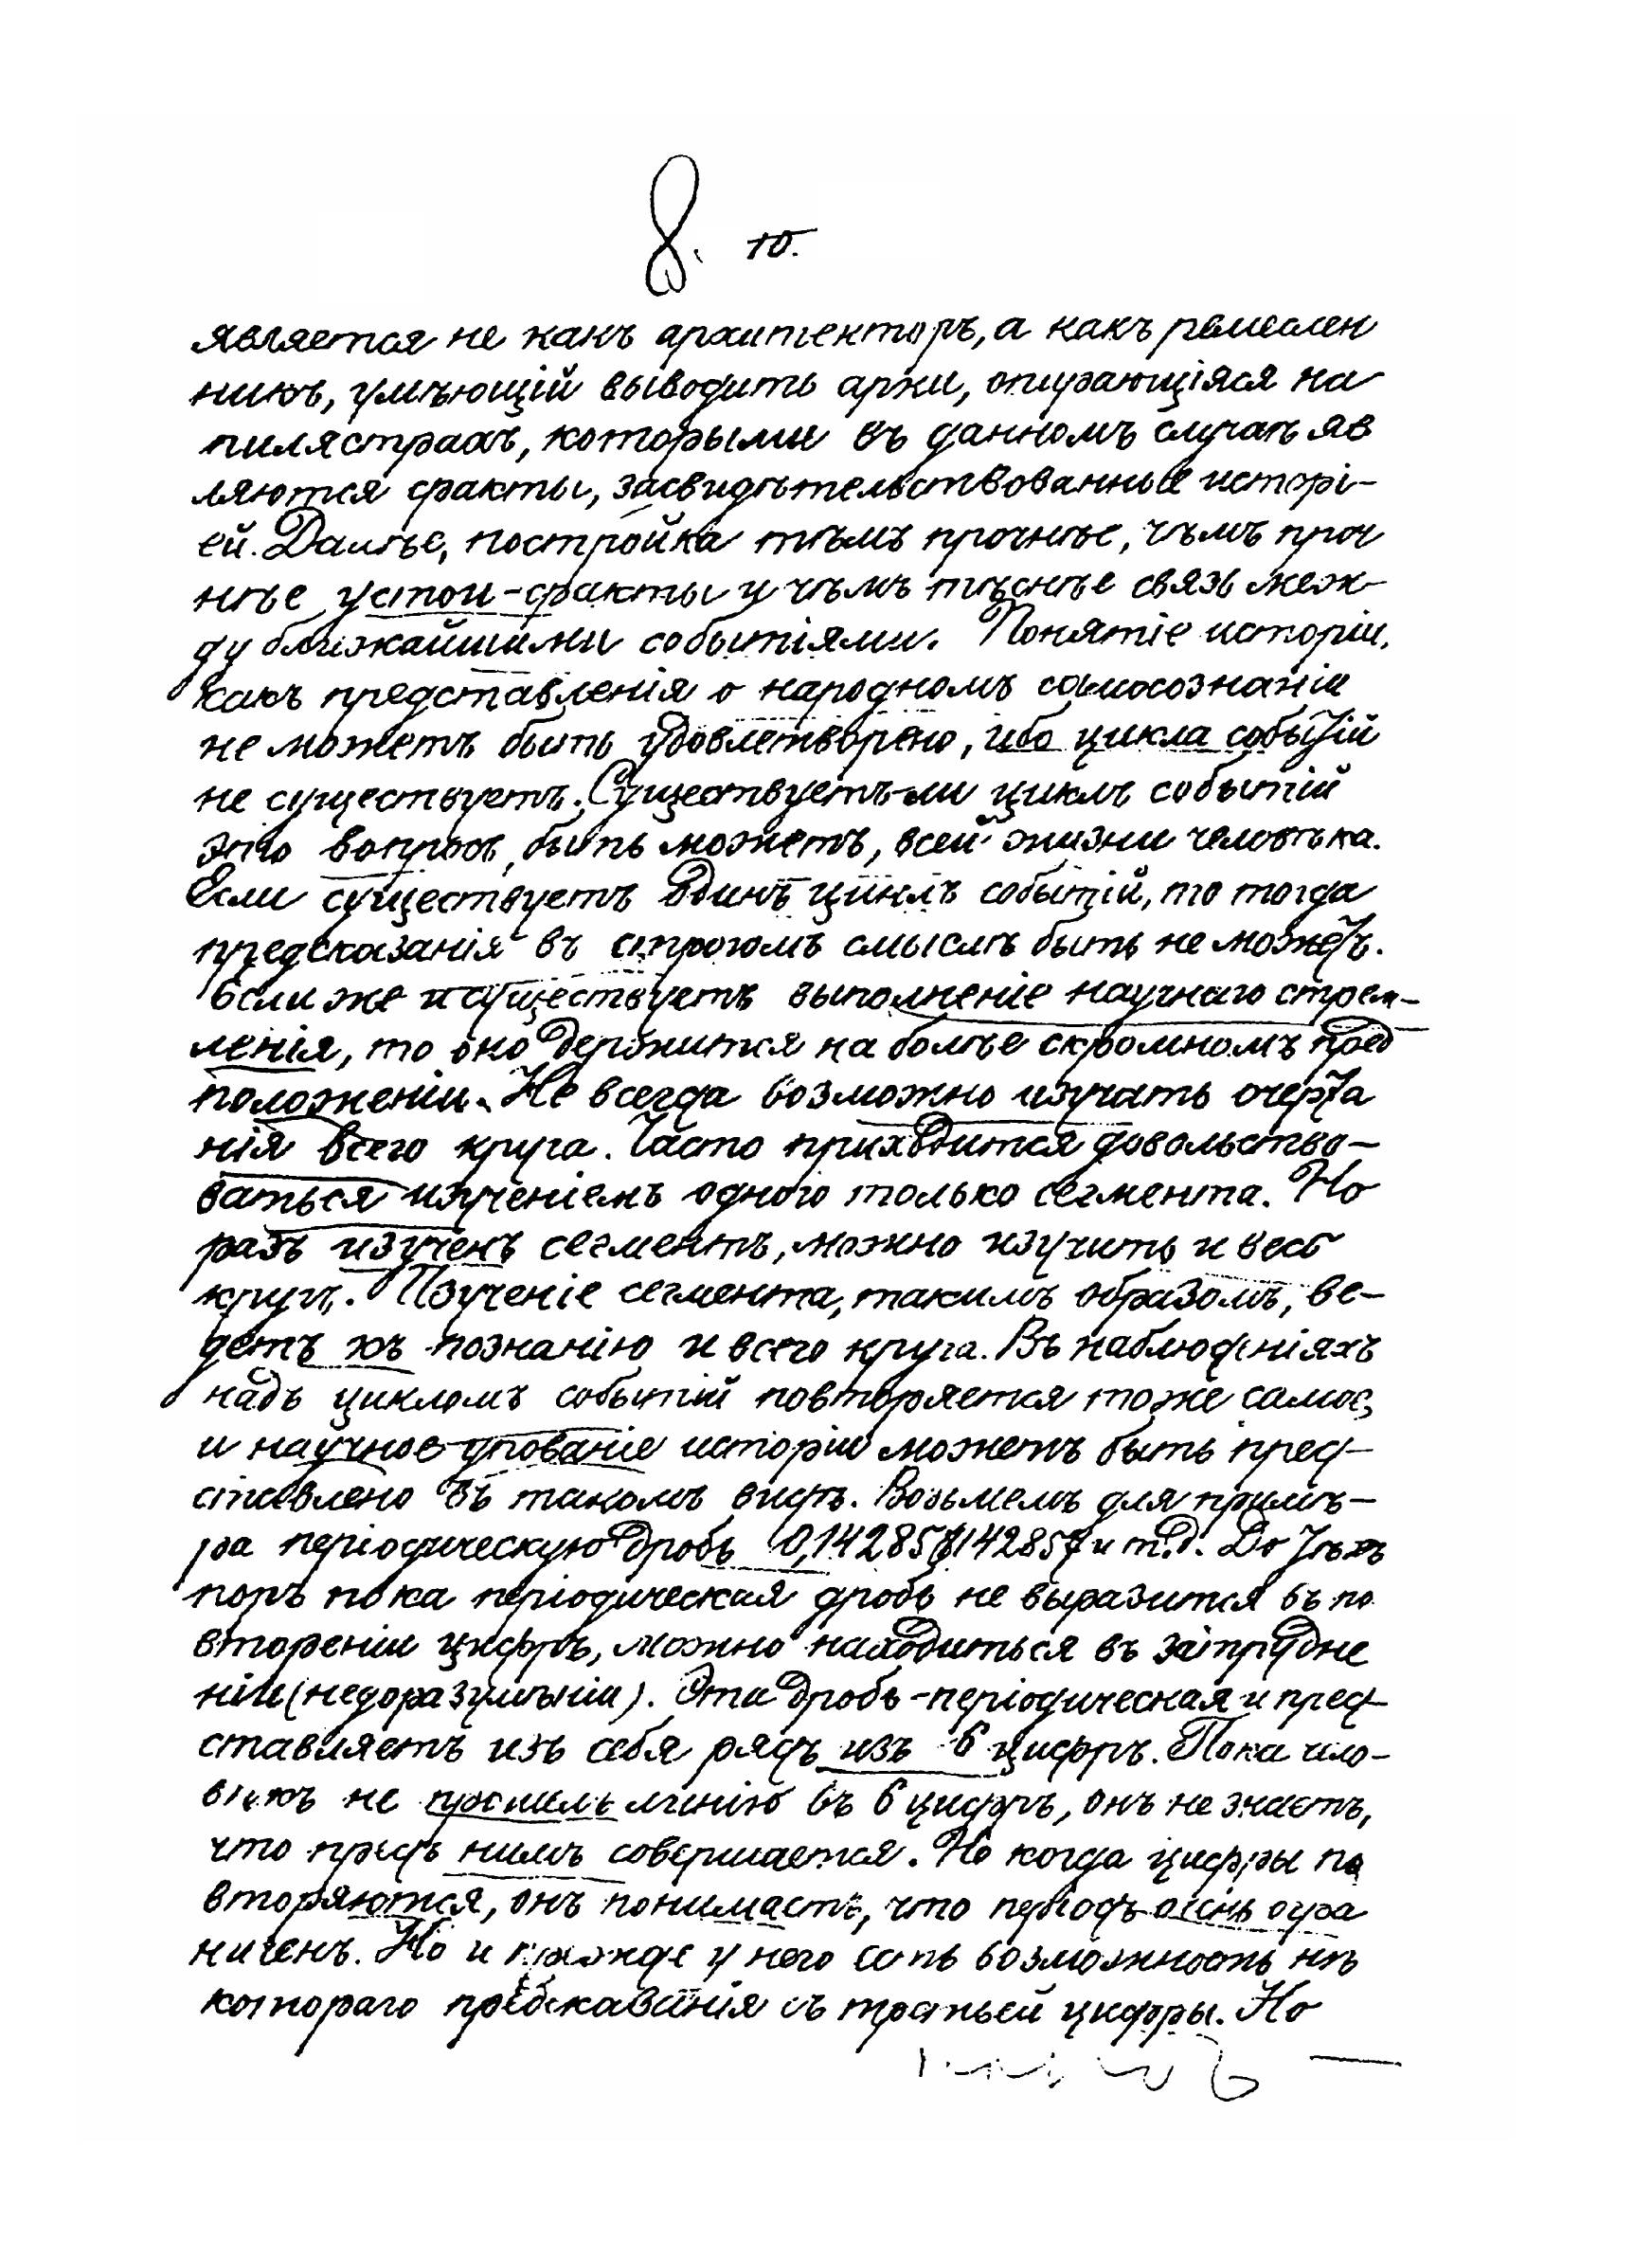 8. 10.
является не какъ архитекторъ, а какъ ремеслен
никъ, умѣющій выводить арки, опирающіяся на
пилястрахъ, которыми въ данномъ случаѣ яв
ляются факты, засвидѣтельствованные исторі-
ей. Далѣе, постройка тѣмъ прочнѣе, чѣмъ проч
нѣе устои-факты и чѣмъ тѣснѣе связь меж-
ду ближайшими событіями. Понятіе исторіи,
какъ представленія о народномъ самосознаніи
не можетъ быть удовлетворено, ибо цикла событій
не существуетъ. Существуетъ-ли циклъ событій
это вопросъ, быть можетъ, всей жизни человѣка.
Если существуетъ одинъ циклъ событій, то тогда
предсказанія въ строгомъ смыслѣ быть не можетъ.
Если же и существуетъ выполненіе научнаго стрем-
ленія, то оно держится на болѣе скромномъ пред
положеніи. Не всегда возможно изучать очерта
нія всего круга. Часто приходится довольство-
ваться изученіемъ одного только сегмента. Но
разъ изученъ сегментъ, можно изучить и весь
кругъ. Изученіе сегмента, такимъ образомъ, ве-
детъ къ познанію и всего круга. Въ наблюденіяхъ
надъ цикломъ событій повторяется тоже самое,
и научное упованіе исторіи можетъ быть пред-
ставлено въ такомъ видѣ. Возьмемъ для примѣ-
ра періодическую дробь 0,142857142857 и т.д. До тѣхъ
поръ пока періодическая дробь не выразится въ по
втореніи цифръ, можно находиться въ затрудне
ніи (недоразумѣніи). Эта дробь-періодическая и пред-
ставляетъ изъ себя рядъ изъ 6 цифръ. Пока чело-
вѣкъ не прошелъ линію въ 6 цифръ, онъ не знаетъ,
что предъ нимъ совершается. Но когда цифры по
вторяются, онъ понимаетъ, что періодъ очень огра
ниченъ. Но и прежде у него есть возможность нѣ
котораго предсказанія съ третьей цифры. Но